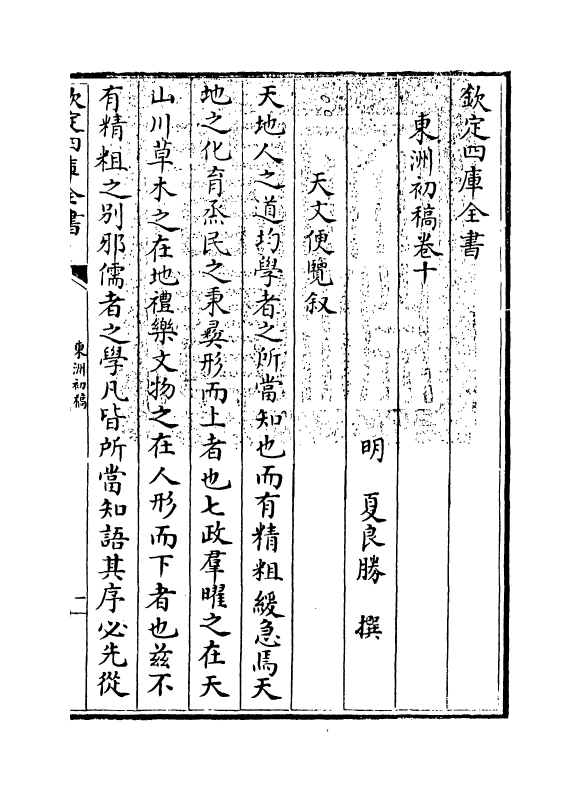 欽定四庫全書
東洲初稿卷十
明 夏良勝 撰
天文便覽叙
天地人之道均學者之所當知也而有精粗緩急焉天
地之化育烝民之秉彛形而上者也七政羣曜之在天
山川草木之在地禮樂文物之在人形而下者也兹不
有精粗之别邪儒者之學凡皆所當知語其序必先從
欽定四庫全書
東洲初稿